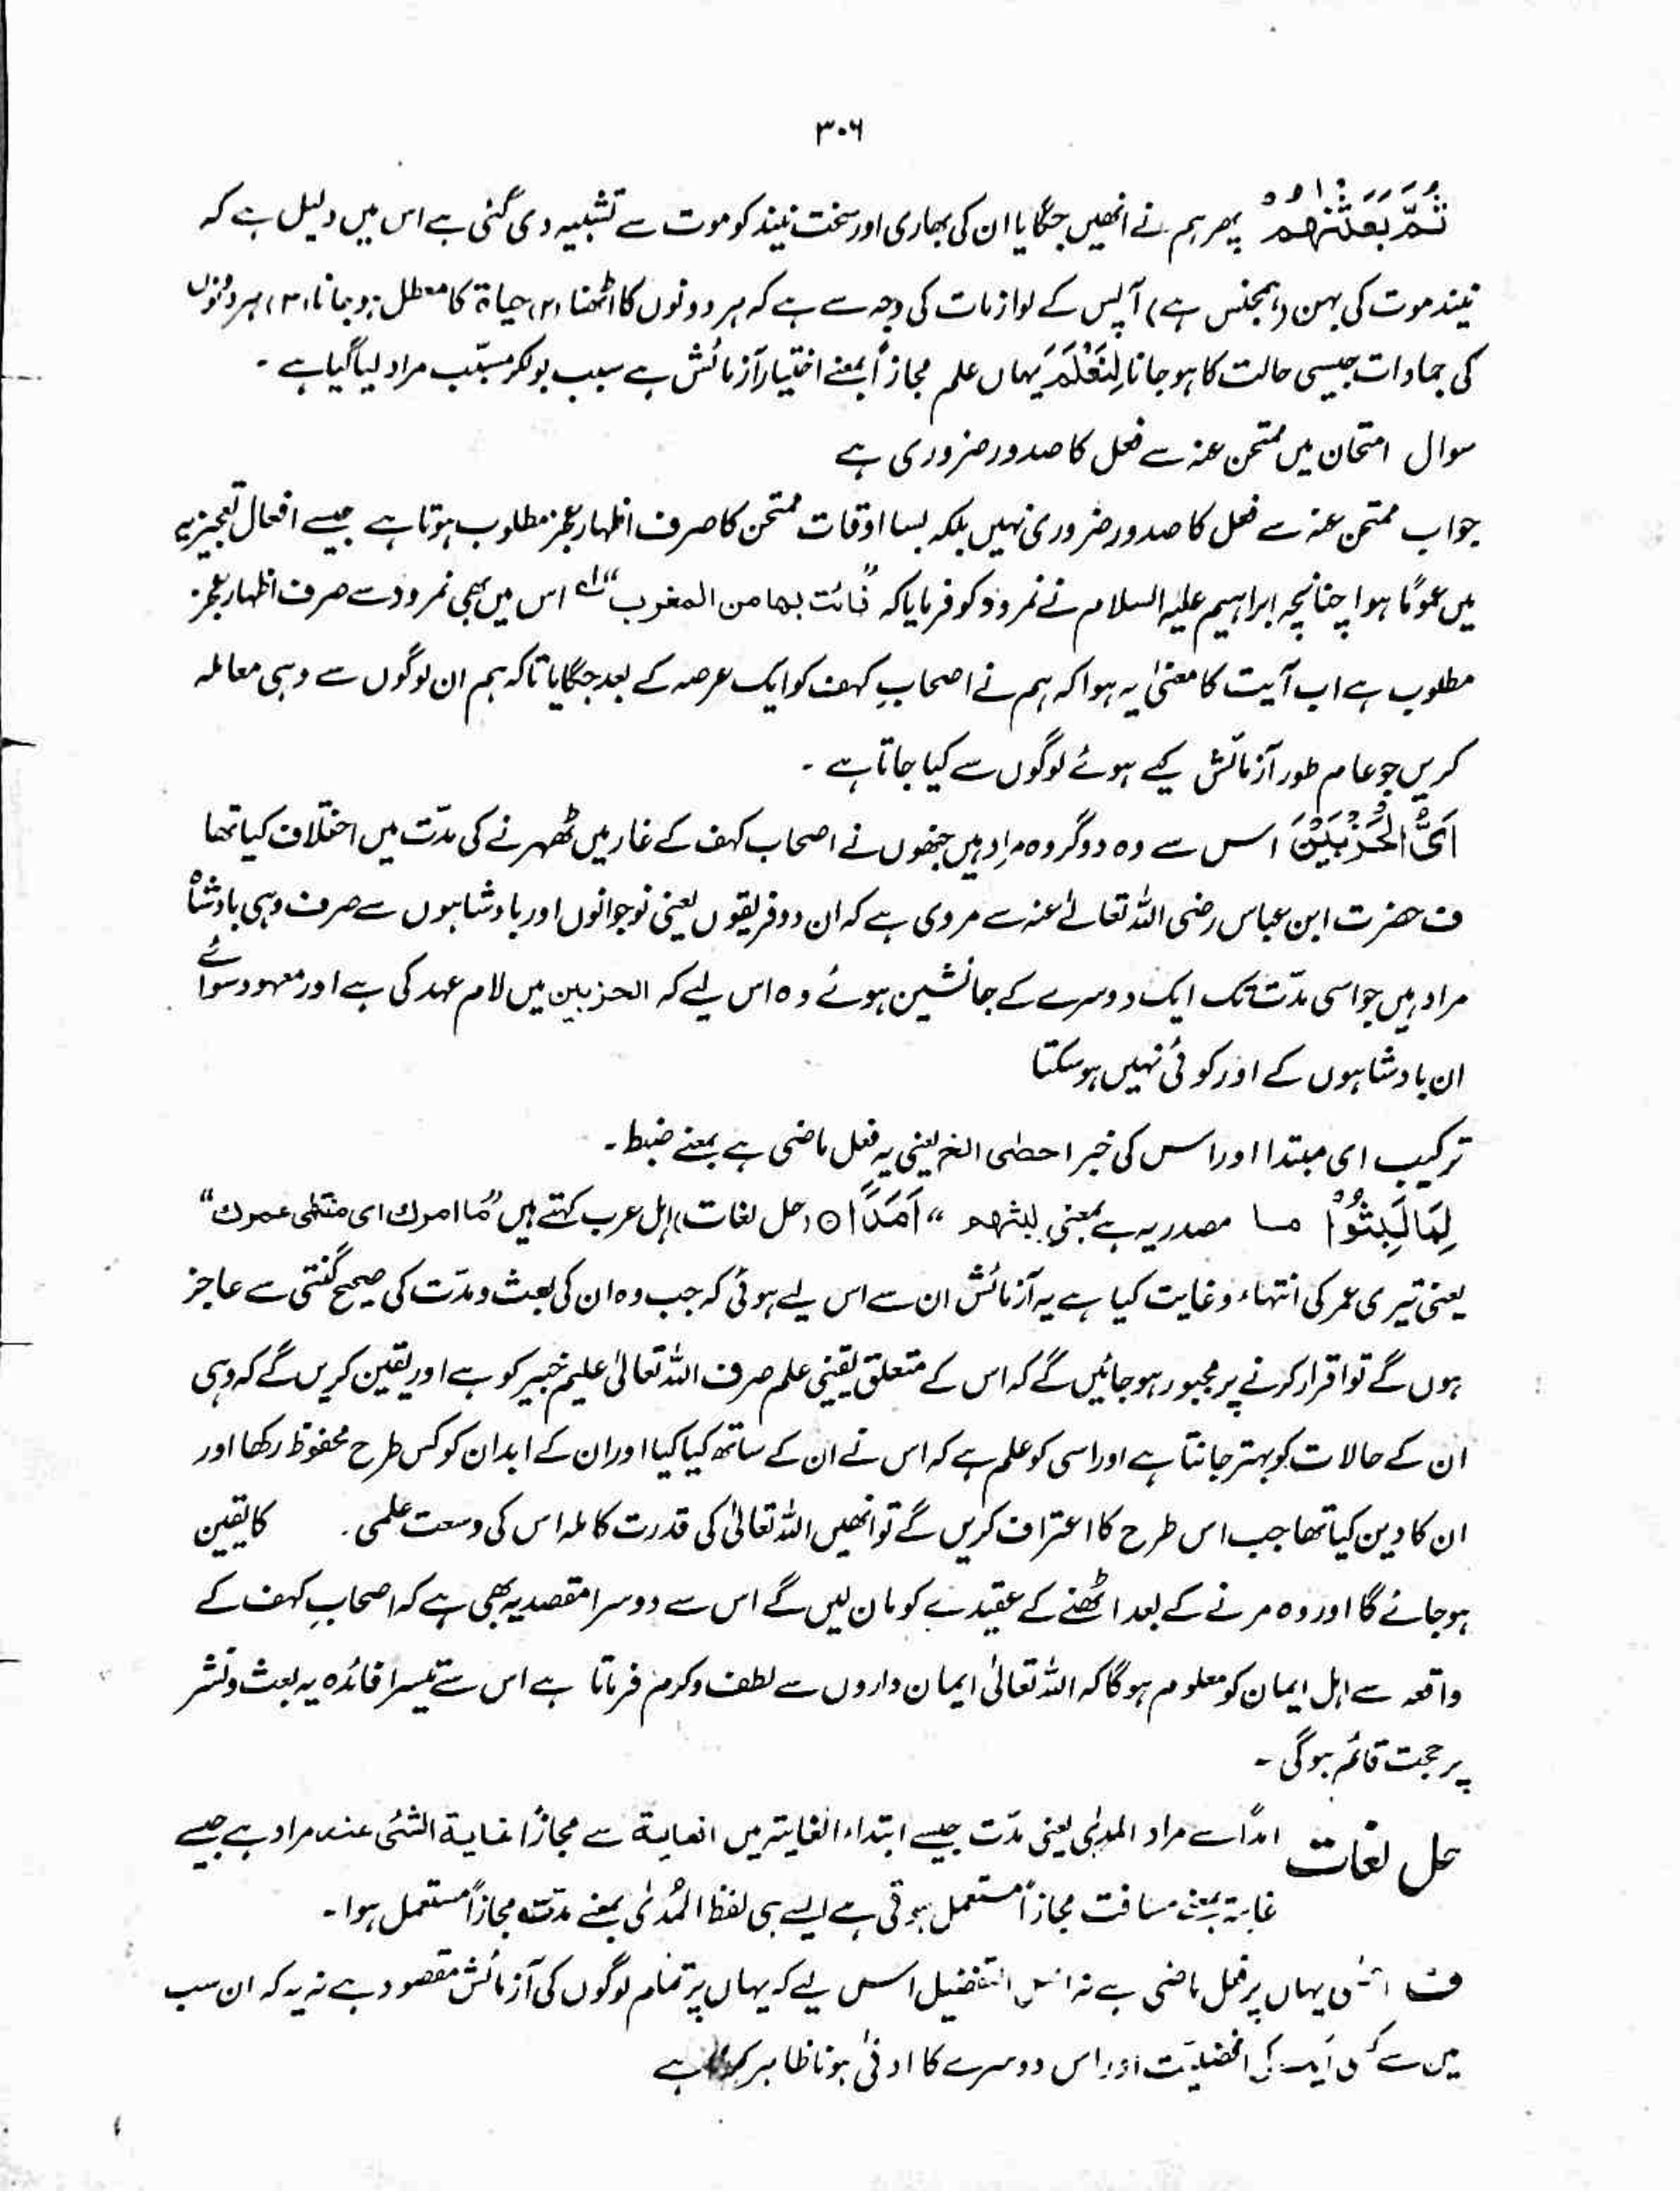 ۳۰۶
ثُمَّ بَعَثْنٰهُمْ پھر ہم نے انھیں جگایا ان کی بھاری اور سخت نیند کو موت سے تشبیہ دی گئی ہے اس میں دلیل ہے کہ
نیند موت کی بہن (ہمجنس ہے) آپس کے لوازمات کی وجہ سے ہے کہ ہر دونوں کا اٹھنا (۲) حیاۃ کا معطل ہو جانا (۳) ہر دونوں
کی جمادات جیسی حالت کا ہو جانا لِنَعْلَمَ یہاں علم مجازاً بمعنے اختیار آزمائش ہے سبب بولکر مسبّب مراد لیا گیا ہے ۔
سوال امتحان میں ممتحن عنہ سے فعل کا صدور ضروری ہے
جواب ممتحن عنہ سے فعل کا صدور ضروری نہیں بلکہ بسا اوقات ممتحن کا صرف اظہار عجز مطلوب ہوتا ہے جیسے افعال تعجیزیہ
میں عموماً ہوا چنانچہ ابراہیم علیہ السلام نے نمرود کو فرمایا کہ ”فائت بھا من المغرب“ اس میں بھی نمرود سے صرف اظہار عجز
مطلوب ہے اب آیت کا معنیٰ یہ ہوا کہ ہم نے اصحابِ کہف کو ایک عرصہ کے بعد جگایا تاکہ ہم ان لوگوں سے وہی معاملہ
کریں جو عام طور آزمائش کیے ہوئے لوگوں سے کیا جاتا ہے ۔
اَیُّ الْحِزْبَیْنِ اس سے وہ دو گروہ مراد ہیں جنھوں نے اصحاب کہف کے غار میں ٹھہرنے کی مدّت میں اختلاف کیا تھا
ف حضرت ابن عباس رضی اللہ تعالےٰ عنہ سے مروی ہے کہ ان دو فریقوں یعنی نوجوانوں اور بادشاہوں سے صرف وہی بادشاہ
مراد ہیں جو اسی مدّت تک ایک دوسرے کے جانشین ہوئے وہ اس لیے کہ الحزبین میں لام عہد کی ہے اور معہود سوائے
ان بادشاہوں کے اور کوئی نہیں ہو سکتا
ترکیب ای مبتدا اور اس کی خبر احصٰی الخ یعنی یہ فعل ماضی ہے بمعنے ضبط ۔
لِمَا لَبِثُوْٓا ما مصدریہ ہے بمعنی لبثھم “ اَمَدًا ○ (حل لغات) اہل عرب کہتے ہیں ”ما امدك ای منتھٰی عمرك“
یعنی تیری عمر کی انتہاء و غایت کیا ہے یہ آزمائش ان سے اس لیے ہوئی کہ جب وہ ان کی بعث و مدّت کی صحیح گنتی سے عاجز
ہوں گے تو اقرار کرنے پر مجبور ہو جائیں گے کہ اس کے متعلق یقینی علم صرف اللہ تعالیٰ علیم خبیر کو ہے اور یقین کریں گے کہ وہی
ان کے حالات کو بہتر جانتا ہے اور اسی کو علم ہے کہ اس نے ان کے ساتھ کیا کیا اور ان کے ابدان کو کس طرح محفوظ رکھا اور
ان کا دین کیا تھا جب اس طرح کا اعتراف کریں گے تو انھیں اللہ تعالیٰ کی قدرت کاملہ اس کی وسعت علمی ۔ کا یقین
ہو جائے گا اور وہ مرنے کے بعد اٹھنے کے عقیدے کو مان لیں گے اس سے دوسرا مقصد یہ بھی ہے کہ اصحابِ کہف کے
واقعہ سے اہل ایمان کو معلوم ہو گا کہ اللہ تعالیٰ ایمان داروں سے لطف و کرم فرماتا ہے اس سے تیسرا فائدہ یہ بعث و نشر
پر حجت قائم ہو گی ۔
حل لغات امداً سے مراد المدٰی یعنی مدّت جیسے ابتداء الغایتہ میں الغایۃ سے مجازاً غایۃ الشئی عنہ مراد ہے جیسے
غایۃ بمعنے مسافت مجازاً مستعمل ہوتی ہے ایسے ہی لفظ المُدٰی بمعنے مدّت مجازاً مستعمل ہوا ۔
ف احصٰی یہاں پر فعل ماضی ہے نہ افعل التفضیل اس لیے کہ یہاں پر تمام لوگوں کی آزمائش مقصود ہے نہ یہ کہ ان سب
میں سے کسی ایک کی افضلیّت اور اس دوسرے کا ادنیٰ ہونا ظاہر ہے